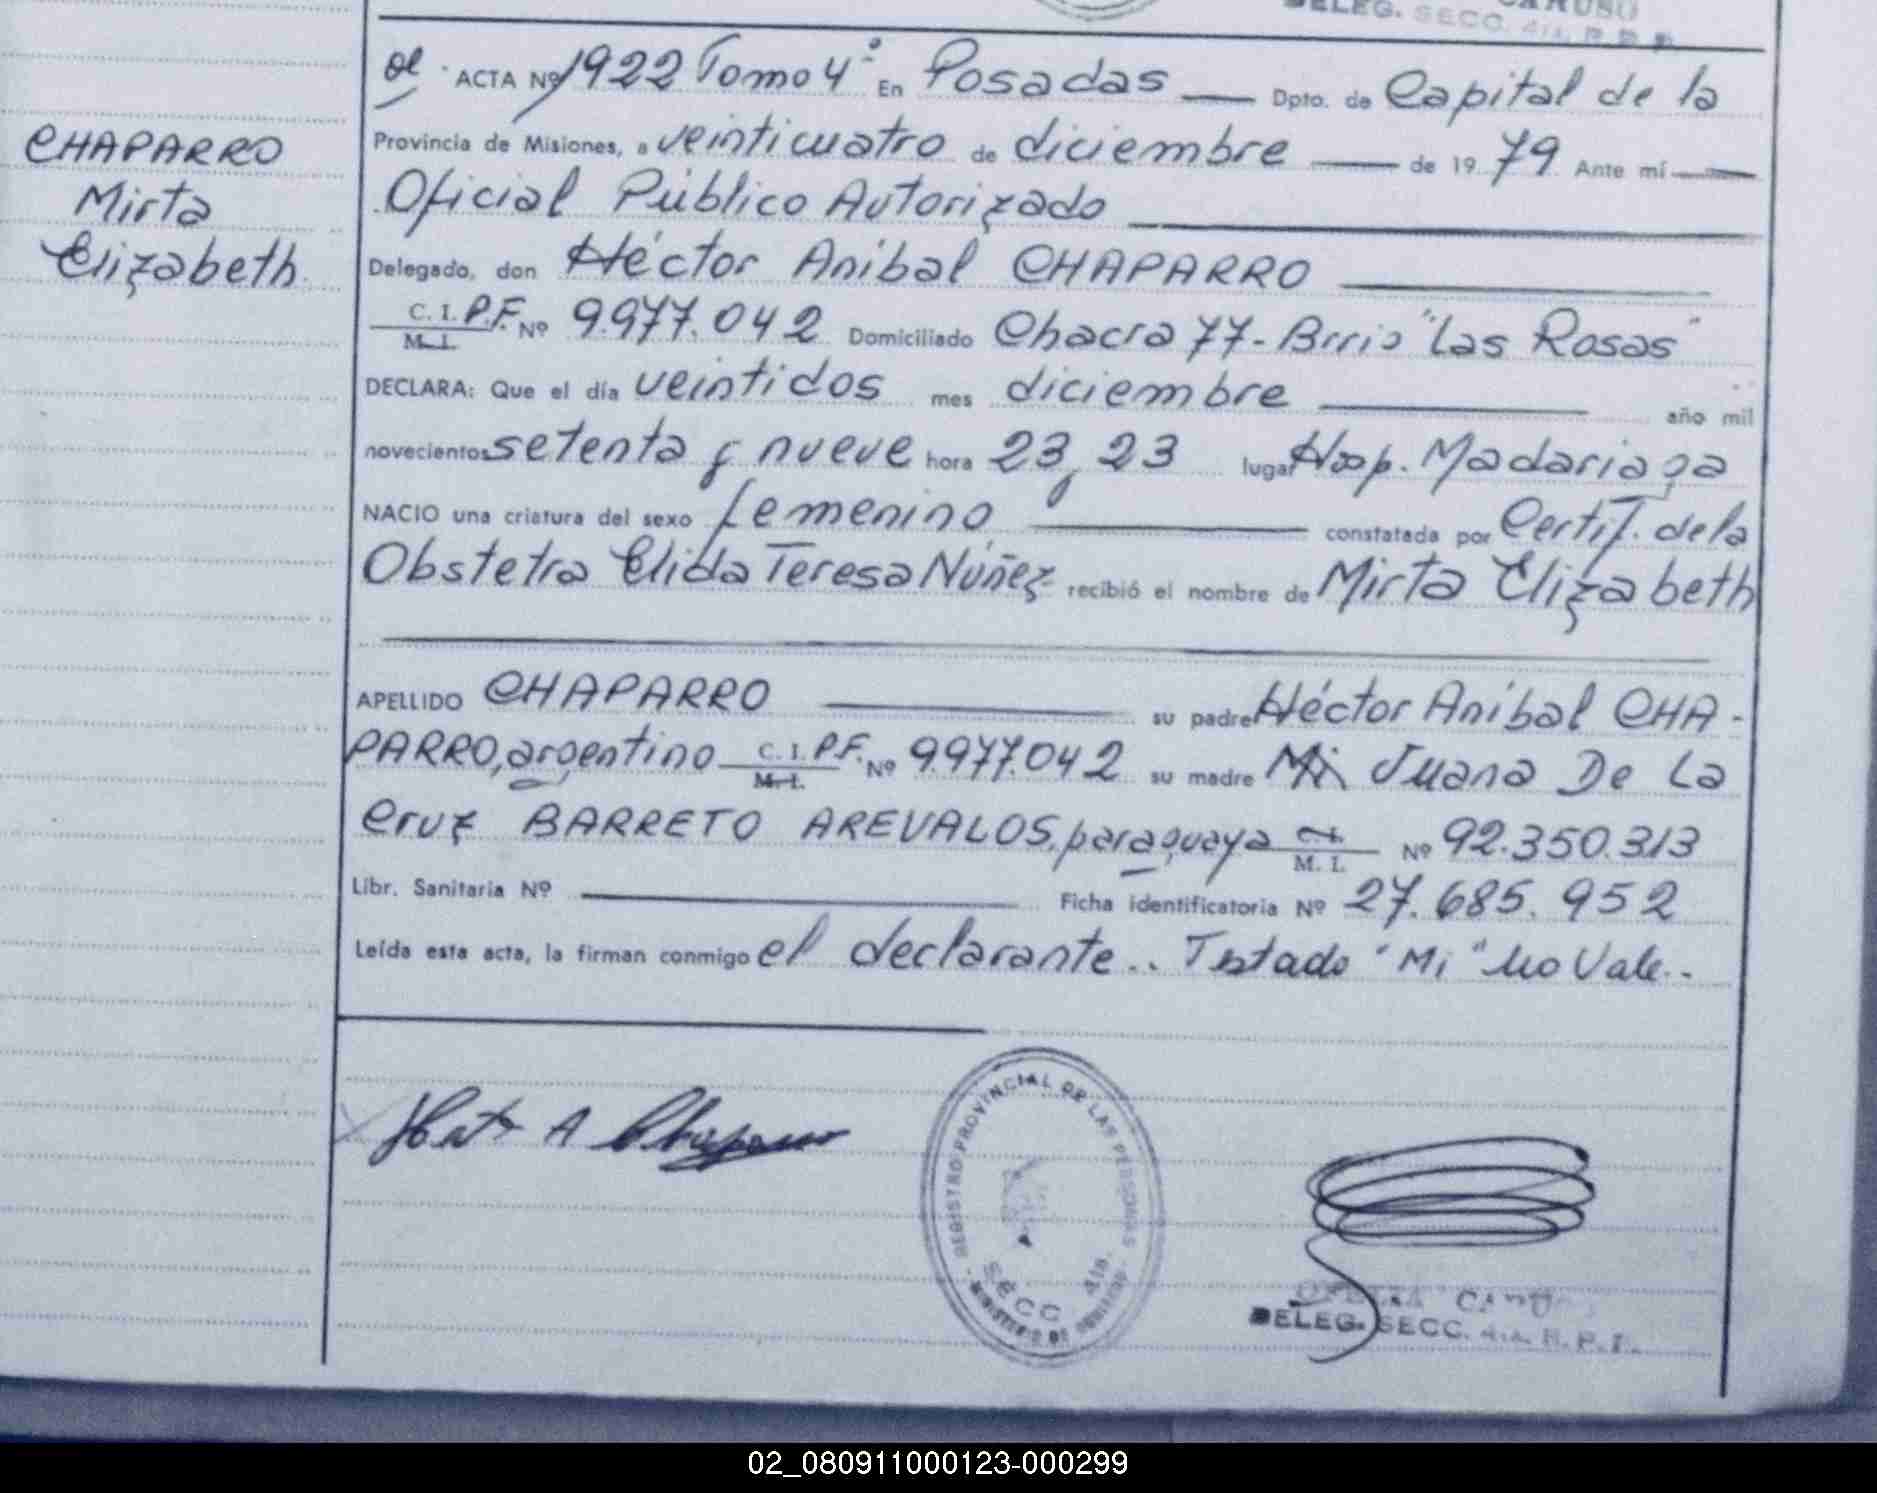 CARUSO
DELEG. SECC. 4ta. R. P. P.
ACTA Nº 1922 Tomo 4º En Posadas Dpto. de Capital de la
Provincia de Misiones, a veinticuatro de diciembre de 1979 Ante mí
Oficial Público Autorizado
CHAPARRO
Mirta
Elizabeth
Delegado, don Héctor Anibal CHAPARRO
C. I. P.F. Nº 9.977.042 Domiciliado Chacra 77 - Brrio "Las Rosas"
M. I.
DECLARA: Que el día veintidos mes diciembre año mil
novecientos setenta y nueve hora 23,23 lugar Hosp. Madariaga
NACIO una criatura del sexo femenino constatada por Certif. de la
Obstetra Elida Teresa Núñez recibió el nombre de Mirta Elizabeth
APELLIDO CHAPARRO su padre Héctor Aníbal CHA-
PARRO, argentino C. I. P.F. Nº 9.977.042 su madre Mi Juana De La
M. I.
Cruz BARRETO AREVALOS, paraguaya C. I. Nº 92.350.313
M. I.
Libr. Sanitaria Nº Ficha identificatoria Nº 27.685.952
Leída esta acta, la firman conmigo el declarante.. Testado "Mi" No Vale.-
REGISTRO PROVINCIAL DE LAS PERSONAS
SECC. 4ta.
MINISTERIO DE GOBIERNO
DELEG. SECC. 4ta. R. P. P.
02_080911000123-000299